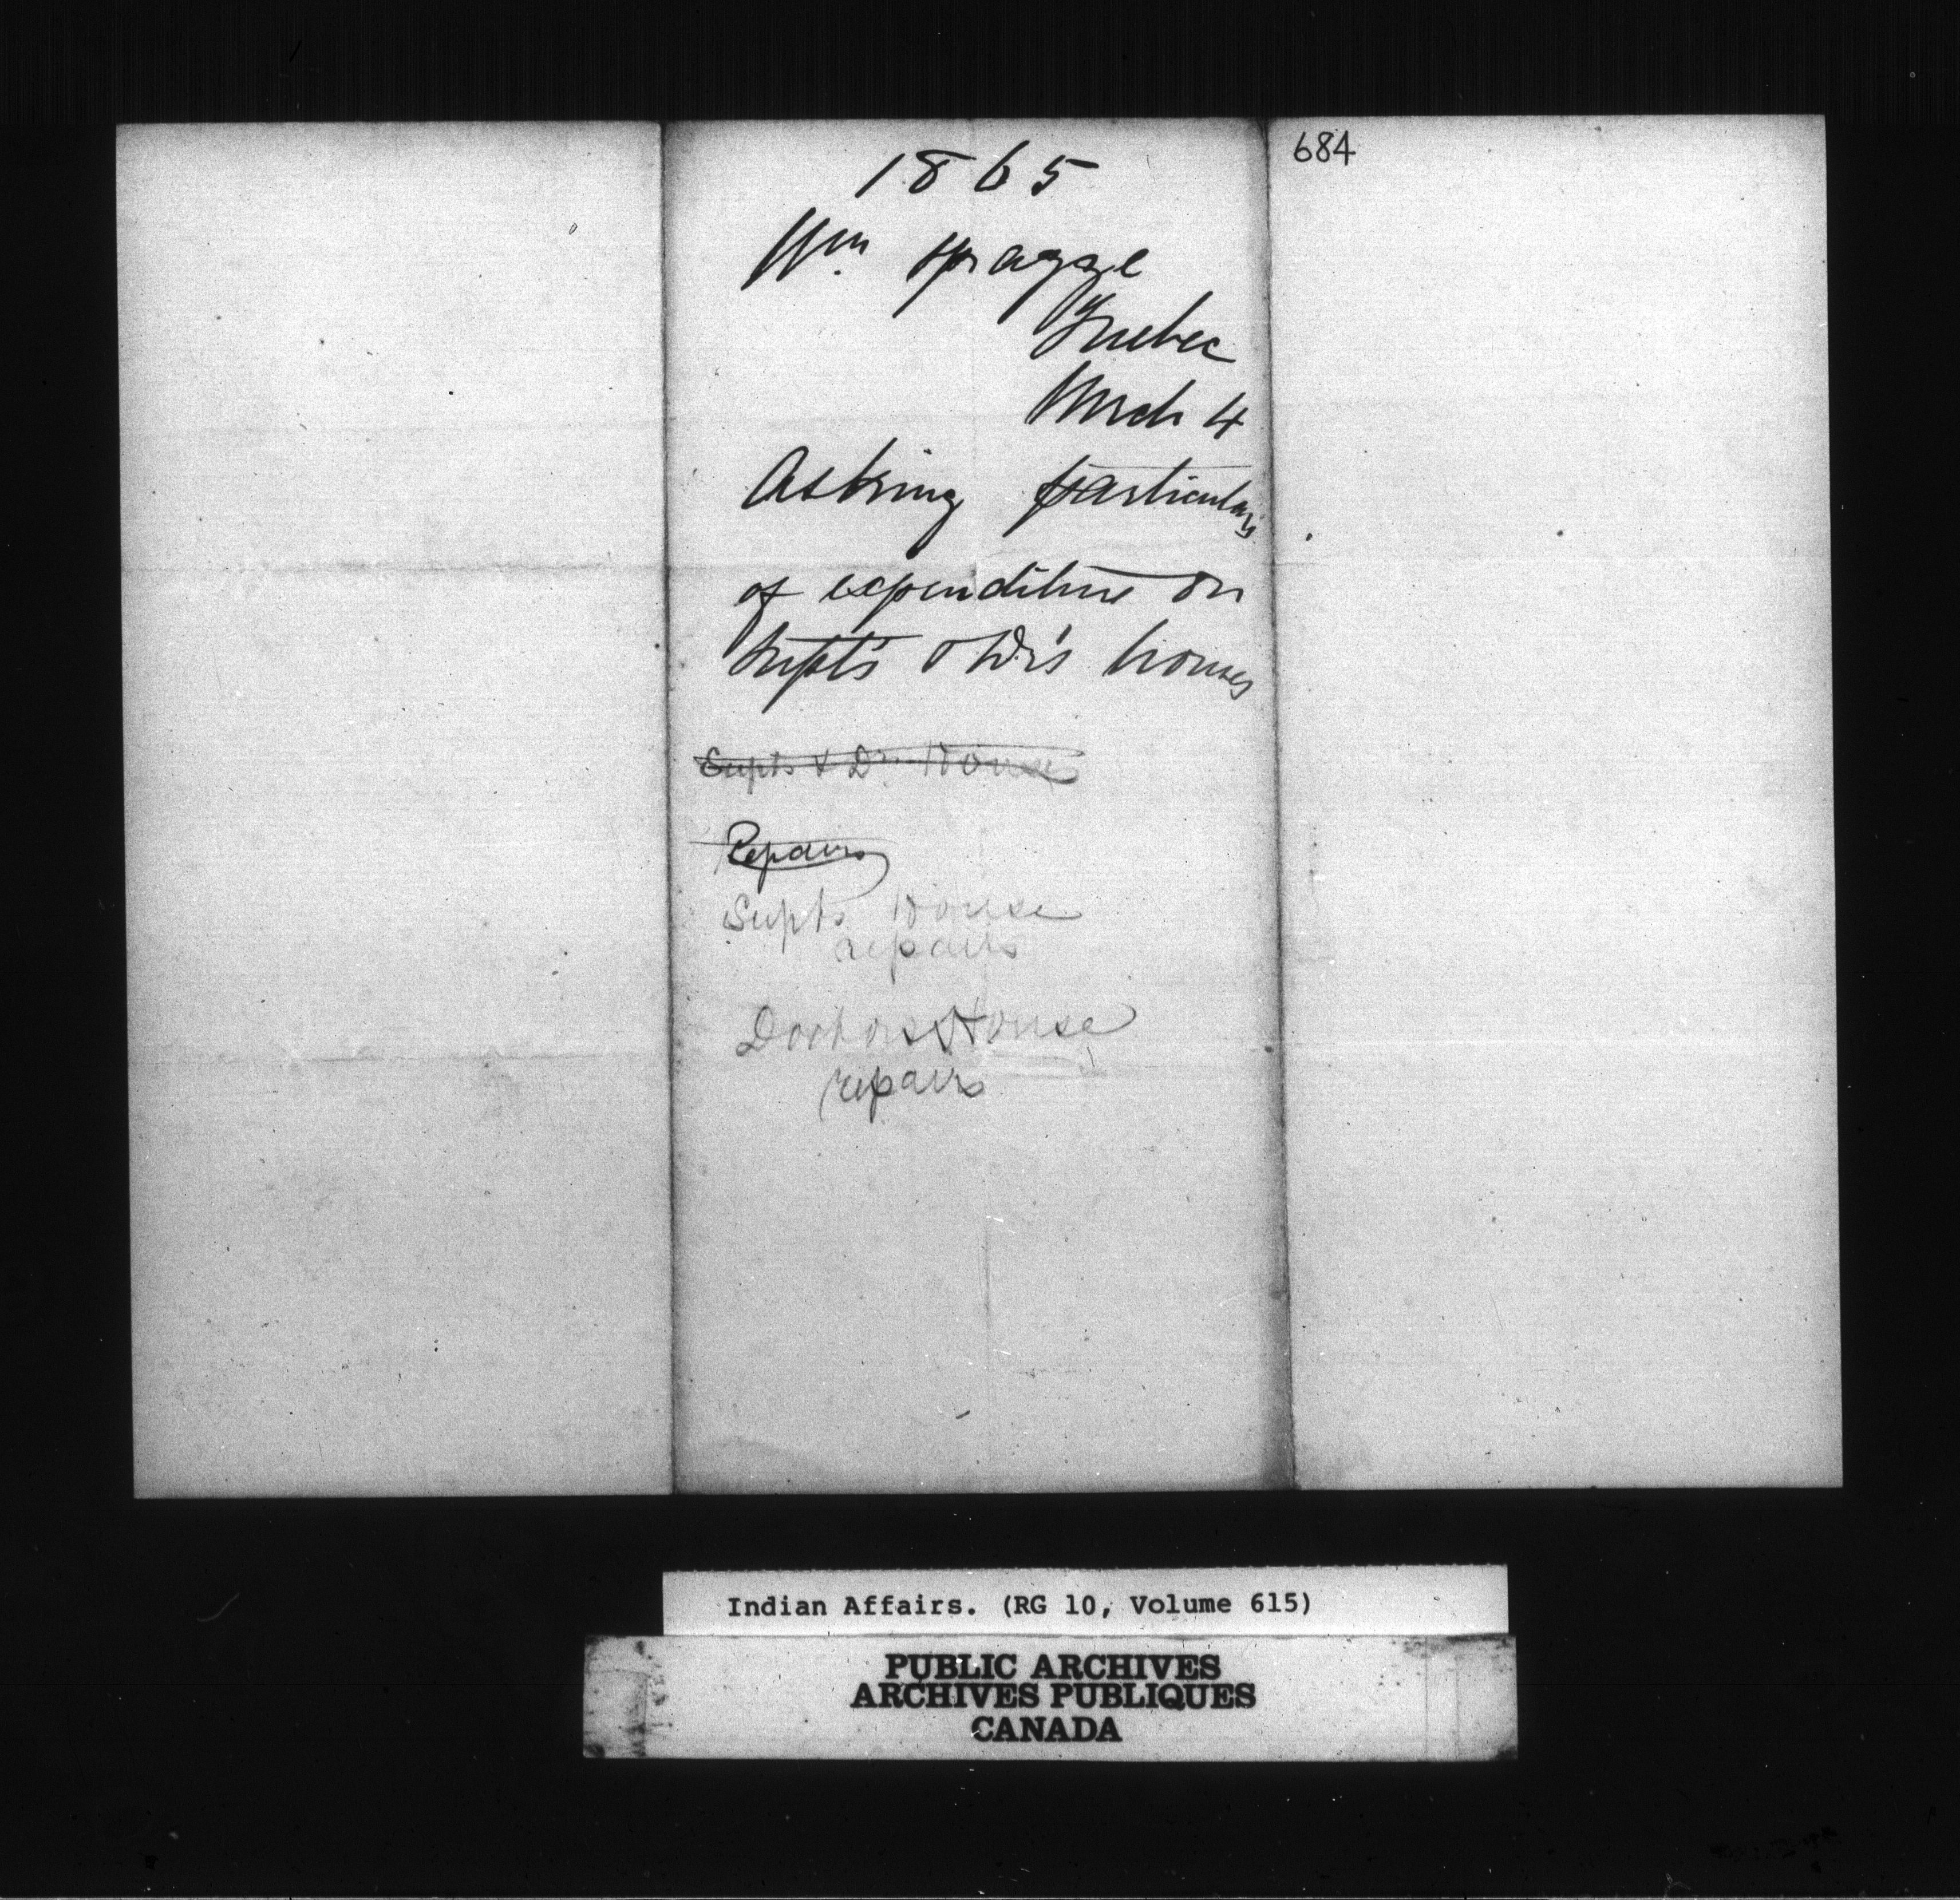 684
1865
Wm Spragge
Quebec
March 4
Asking particulars
of expenditure on
Supt's & Dr's houses
Supts & Drs House
Repairs
Supts House
repairs
Doctors House
repairs
Indian Affairs. (RG 10, Volume 615)
PUBLIC ARCHIVES
ARCHIVES PUBLIQUES
CANADA